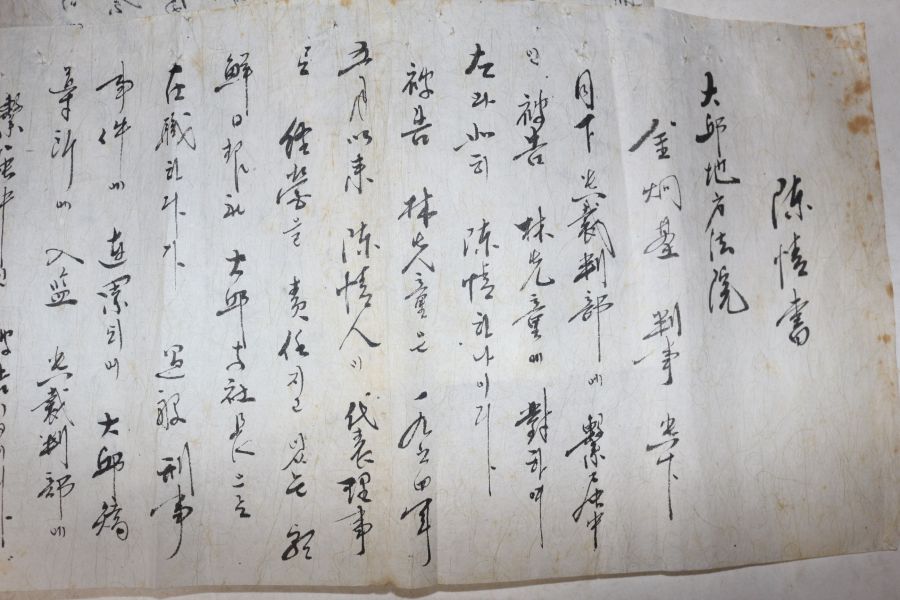 陳情書
大邱地方法院
金炯基 判事 貴下
目下 貴裁判部에 繫属中
인 被告 林先童에 對하여
左와 如히 陳情하나이다
被告 林先童은 一九五四年
五月以来 陳情人이 代表理事
로 経営을 責任지고 있는 朝
鮮日報社 大邱支社長으로
在職하다가 過般 刑事
事件에 連累되여 大邱矯
導所에 入監 貴裁判部에
繫属中